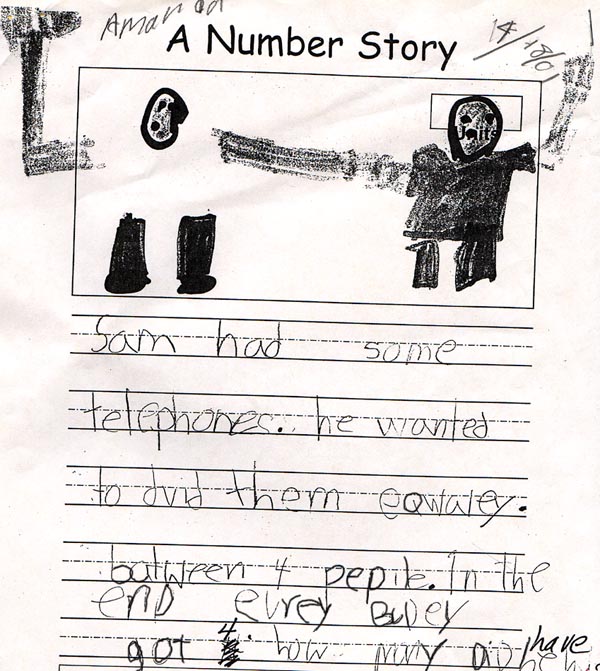 A Number Story
Sam had some
telephones. he wanted
to dvid them eqwaley.
batween 4 pepile. In the
end evrey Budey
got 4. how have